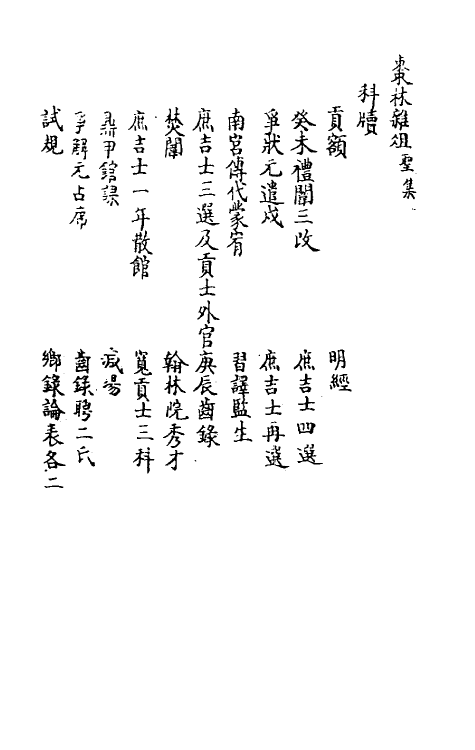 棗林雜俎聖集
科牘
貢額
明經
癸未禮闈三改
庶吉士四選
爭狀元遣戍
庶吉士再選
南宮傳代蒙宥
習譯監生
庶吉士三選及貢士外官
庚辰齒錄
焚闈
翰林院秀才
庶吉士一年散館
寬貢士三科
鼎甲館課
減場
爭解元占席
齒錄聘二氏
試規
鄉錄論表各二